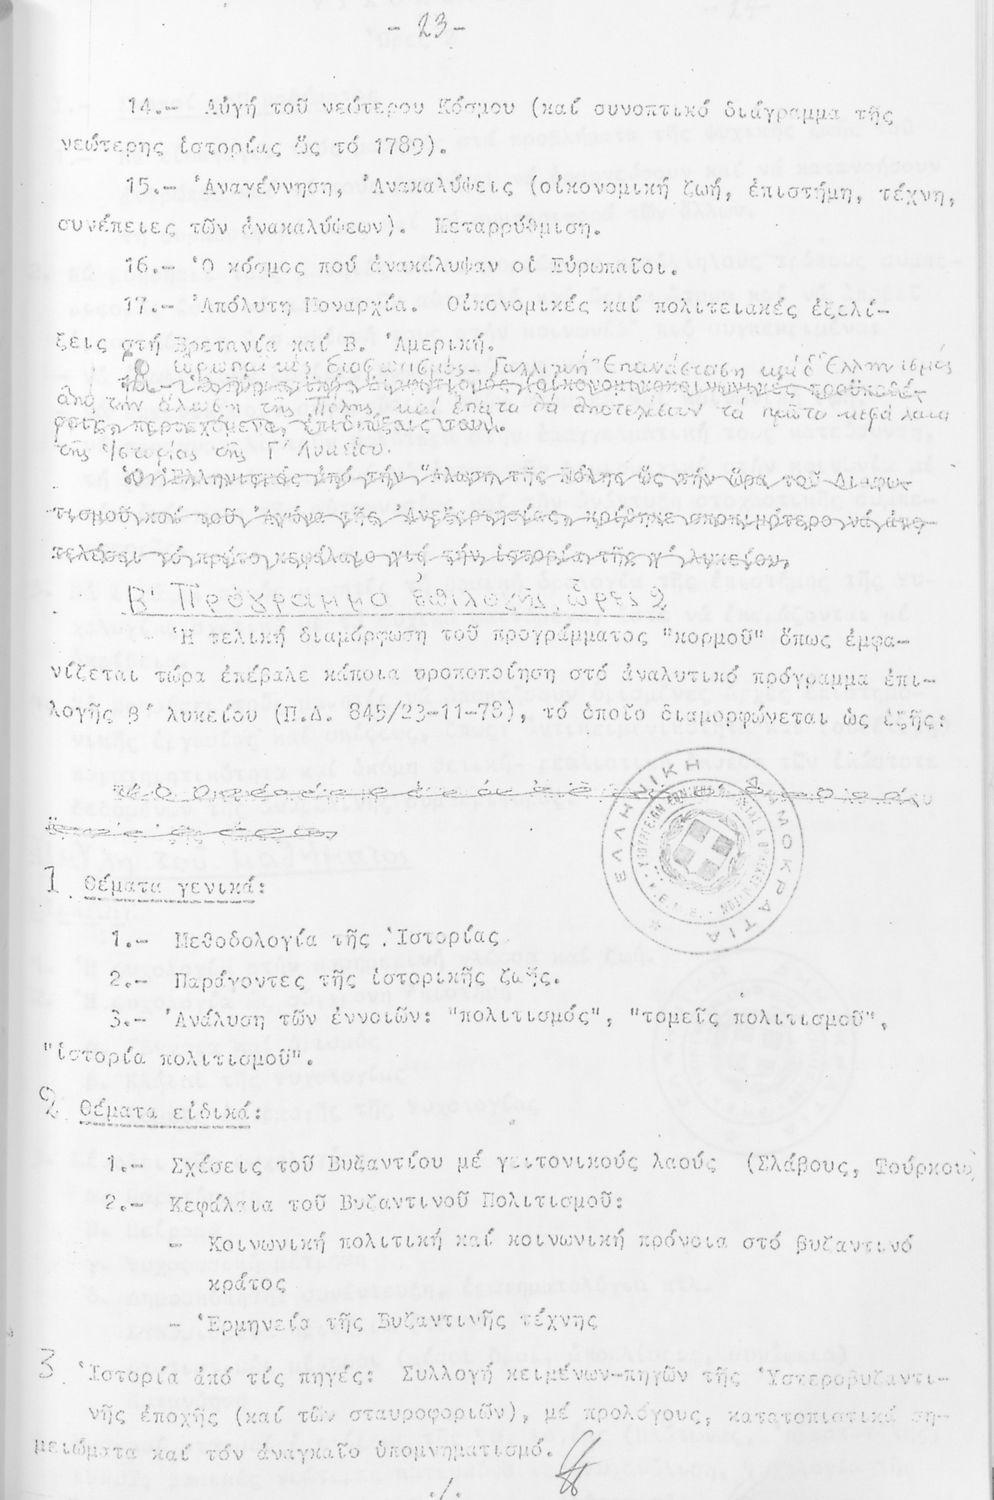 - 23 -
14.- Αὐγή τοῦ νεώτερου Κόσμου (καί συνοπτικό διάγραμμα τῆς
νεώτερης ἱστορίας ὥς τό 1789).
15.- Ἀναγέννηση, Ἀνακαλύψεις (οἰκονομική ζωή, ἐπιστήμη, τέχνη,
συνέπειες τῶν ἀνακαλύψεων). Μεταρρύθμιση.
16.- Ὁ κόσμος πού ἀνακάλυψαν οἱ Εὐρωπαῖοι.
17.- Ἀπόλυτη Μοναρχία. Οἰκονομικές καί πολιτειακές ἐξελί-
ξεις στή Βρετανία καί Β. Ἀμερική.
18 Εὐρωπαϊκός διαφωτισμός. Γαλλική Ἐπανάσταση καί ὁ Ἑλληνισμός
ἀπό τήν ἅλωση τῆς Πόλης, καί ἔπειτα θά ἀποτελέσουν τά πρῶτα κεφάλαια
τῆς Ἱστορίας τῆς Γ' Λυκείου.
Ὁ Ἑλληνισμός ἀπό τήν Ἅλωση τῆς Πόλης ὥς τήν ὥρα τοῦ Διαφω-
τισμοῦ καί τοῦ Ἀγώνα τῆς Ἀνεξαρτησίας, κρίθηκε σκοπιμότερο νά ἀπο-
τελέσει τό πρῶτο κεφάλαιο γιά τήν ἱστορία τῆς γ' λυκείου.
Β' Πρόγραμμα ἐπιλογῆς ὧρες 2
Ἡ τελική διαμόρφωση τοῦ προγράμματος "κορμοῦ" ὅπως ἐμφα-
νίζεται τώρα ἐπέβαλε κάποια τροποποίηση στό ἀναλυτικό πρόγραμμα ἐπι-
λογῆς β' λυκείου (Π.Δ. 845/23-11-78), τό ὁποῖο διαμορφώνεται ὡς ἑξῆς:
ΕΛΛΗΝΙΚΗ ΔΗΜΟΚΡΑΤΙΑ
1 Θέματα γενικά:
1.- Μεθοδολογία τῆς Ἱστορίας
2.- Παράγοντες τῆς ἱστορικῆς ζωῆς.
3.- Ἀνάλυση τῶν ἐννοιῶν: "πολιτισμός", "τομεῖς πολιτισμοῦ",
"ἱστορία πολιτισμοῦ".
2 Θέματα εἰδικά:
1.- Σχέσεις τοῦ Βυζαντίου μέ γειτονικούς λαούς (Σλάβους, Τούρκους)
2.- Κεφάλαια τοῦ Βυζαντινοῦ Πολιτισμοῦ:
- Κοινωνική πολιτική καί κοινωνική πρόνοια στό βυζαντινό
κράτος
- Ἑρμηνεία τῆς Βυζαντινῆς τέχνης
3 Ἱστορία ἀπό τίς πηγές: Συλλογή κειμένων-πηγῶν τῆς Ὑστεροβυζαντι-
νῆς ἐποχῆς (καί τῶν σταυροφοριῶν), μέ προλόγους, κατατοπιστικά ση-
μειώματα καί τόν ἀναγκαῖο ὑπομνηματισμό.
./.